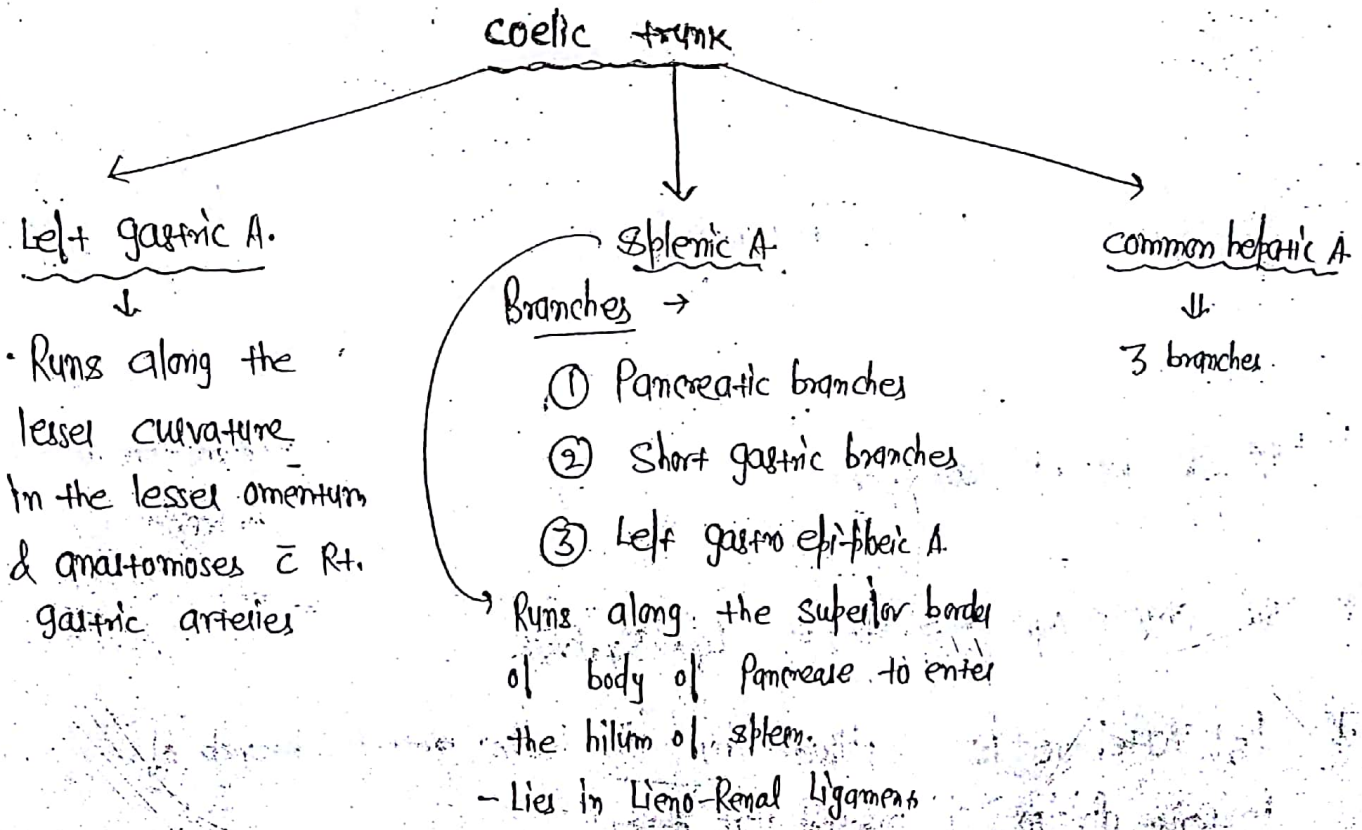 coelic trunk
Left gastric A.
↓
• Runs along the
lesser curvature
in the lesser omentum
& anastomoses c̄ Rt.
gastric arteries
Splenic A.
Branches →
① Pancreatic branches
② Short gastric branches
③ Left gastro epi-ploic A.
Runs along the superior border
of body of Pancrease to enter
the hilum of spleen.
- Lies in Lieno-Renal Ligament.
common hepatic A.
⇓
3 branches.